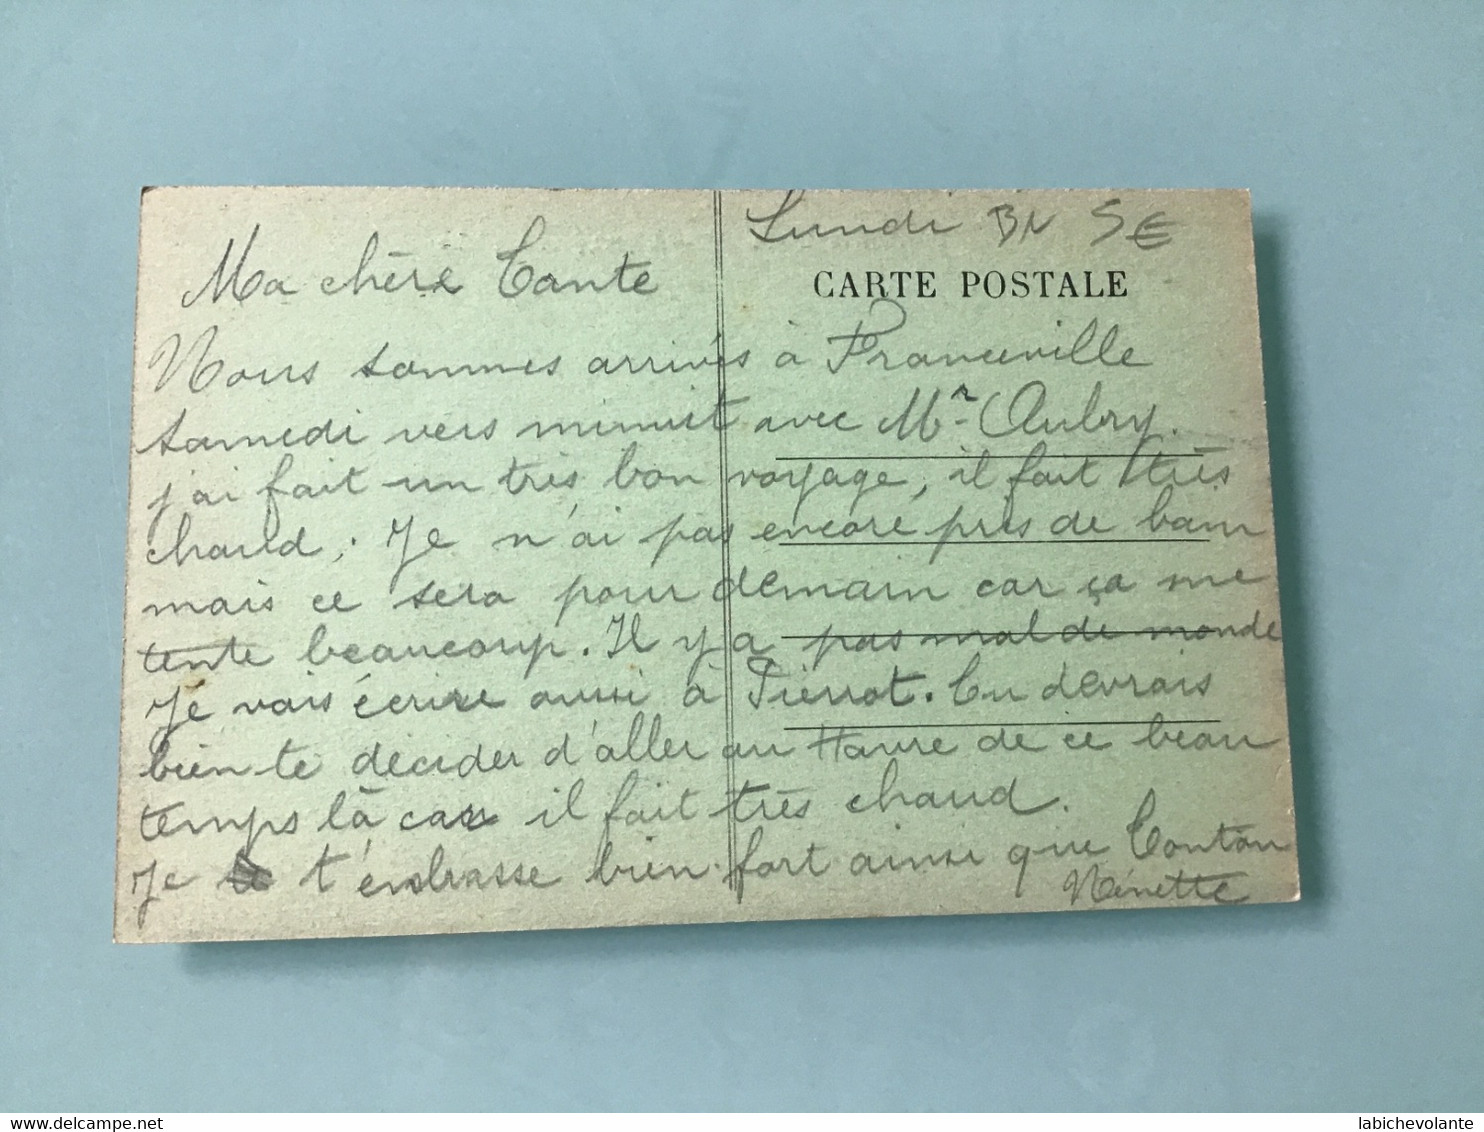 Lundi BN 5€
CARTE POSTALE
Ma chère Tante
Nous sommes arrivés à Franceville
samedi vers minuit avec Mr Aubry.
j'ai fait un très bon voyage, il fait très
chaud. Je n'ai pas encore pris de bain
mais ce sera pour demain car ça me
tente beaucoup. Il y a pas mal de monde
Je vais écrire aussi à Pierrot. Tu devrais
bien te décider d'aller au Havre de ce beau
temps là car il fait très chaud.
Je t'embrasse bien fort ainsi que Tonton
Nénette
delcampe.net
labichevolante